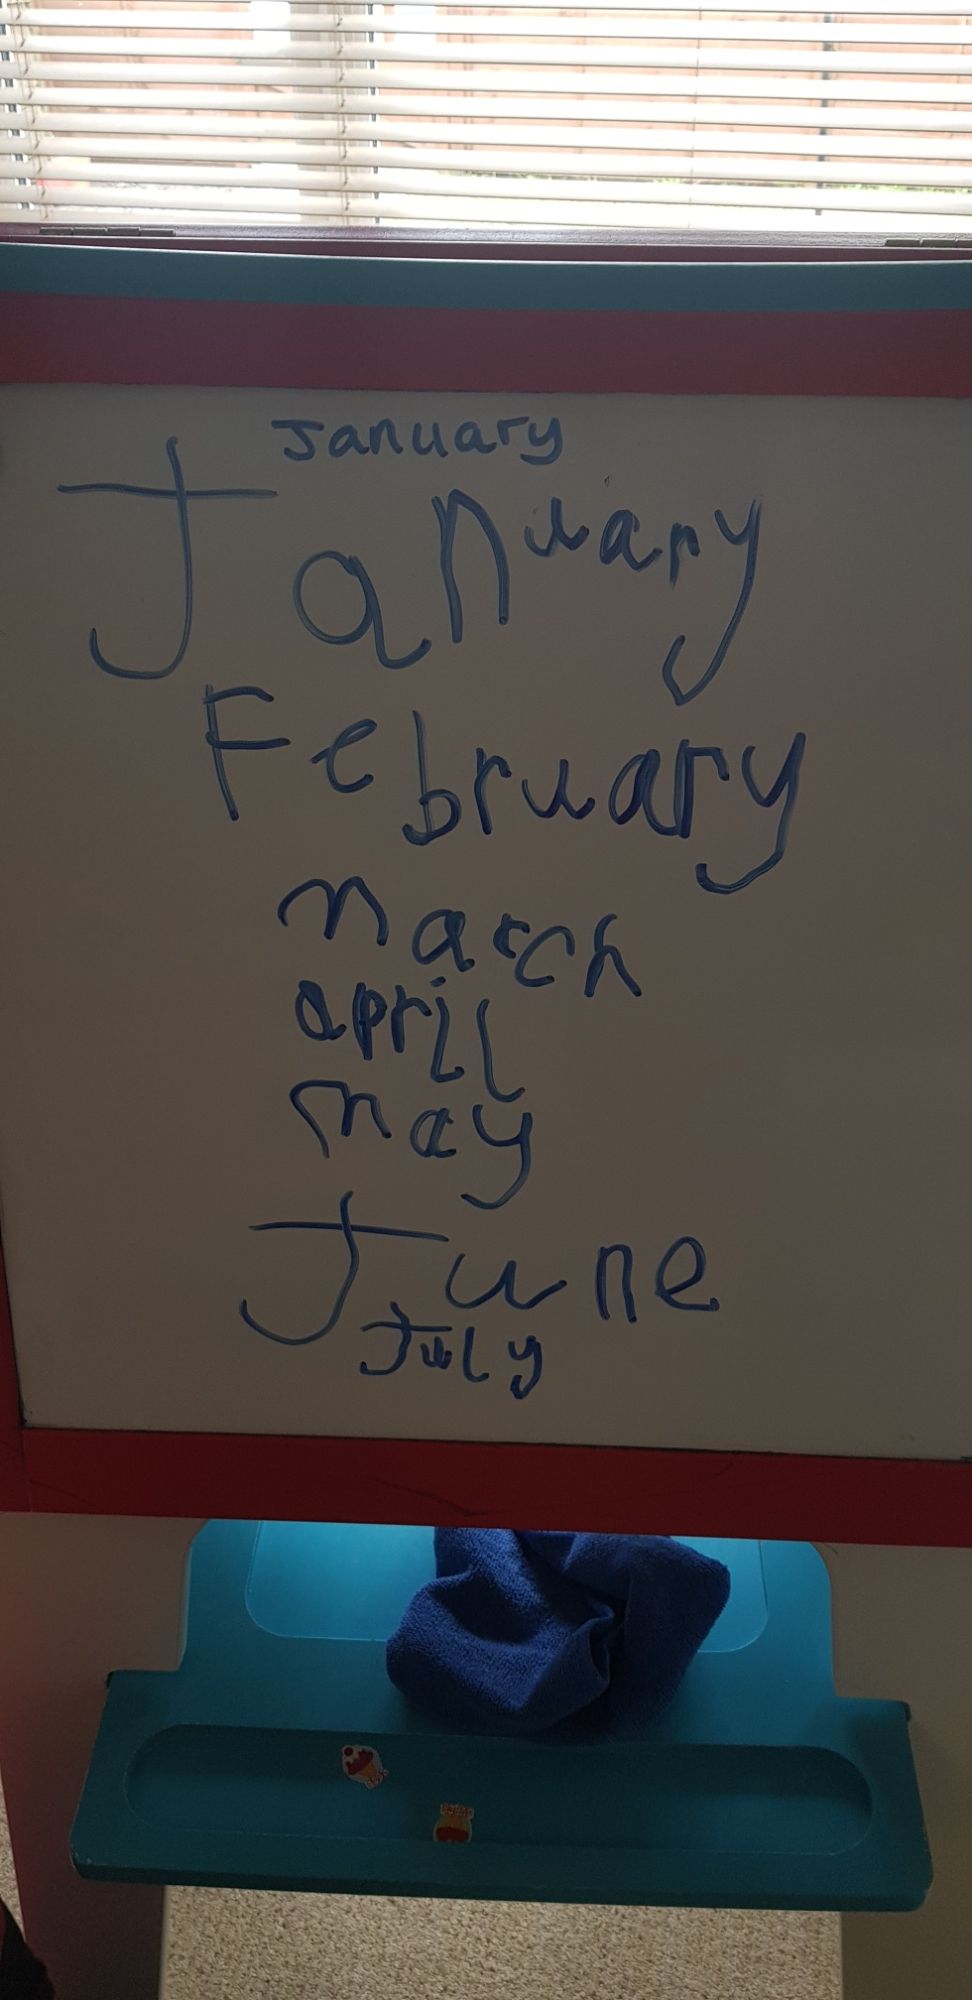 January
January
February
march
april
may
June
July